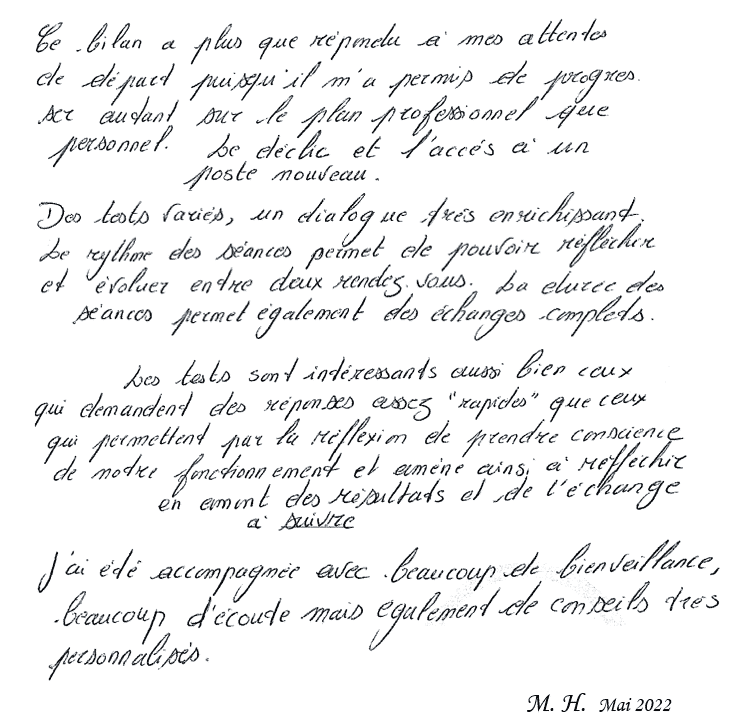 Ce bilan a plus que répondu à mes attentes
de départ puisqu'il m'a permis de progres-
ser autant sur le plan professionnel que
personnel. Le déclic et l'accés à un
poste nouveau.
Des tests variés, un dialogue très enrichissant.
Le rythme des séances permet de pouvoir réflechir
et évoluer entre deux rendez-vous. La durée des
séances permet également des échanges complets.
Les tests sont intéressants aussi bien ceux
qui demandent des réponses assez "rapides" que ceux
qui permettent par la réflexion de prendre conscience
de notre fonctionnement et amène ainsi à réflechir
en amont des résultats et de l'échange
à suivre
J'ai été accompagnée avec beaucoup de bienveillance,
beaucoup d'écoute mais également de conseils très
personnalisés.
M. H. Mai 2022